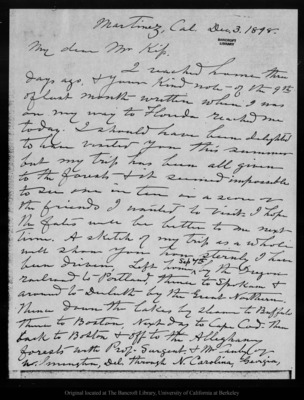 Martinez, Cal. Dec. 3. 1898.
BANCROFT
LIBRARY
My dear Mr Kip,
I reached home three
days ago, & your kind note of the 9th
of last month written when I was
on my way to Florida reached me
today. I should have been delighted
to have visited you this summer
but my trip has been all given
to the forests & it seemed impossible
to see one in ten or a score of
the friends I wanted to visit. I hope
the fates will be better to me next
time. A sketch of my trip as a whole
will show you how I have
been driven. Left home Sept 7th by the Oregon
railroad to Portland, thence to Spokane &
around to Duluth by the Great Northern,
thence down the lakes by steam to Buffalo
thence to Boston. Next day to Cape Cod. then
back to Boston & off to the Alleghany
forests with Prof. Sargent & Mr Canby of
Wilmington, Del. through N. Carolina, Georgia,
Original located at The Bancroft Library, University of California, at Berkeley.